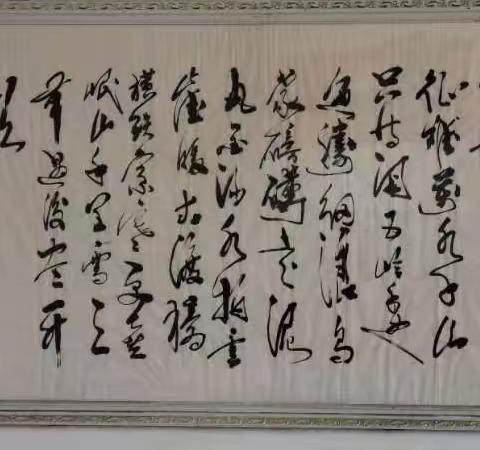 征难万水千山
只等闲五岭逶
迤腾细浪乌
蒙磅礴走泥
丸金沙水拍云
崖暖大渡桥
横铁索寒更喜
岷山千里雪三
军过后尽开